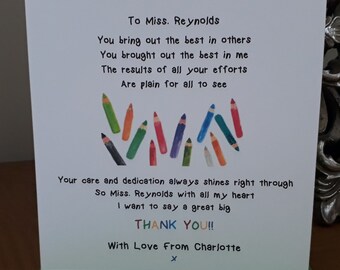 To Miss. Reynolds
You bring out the best in others
You brought out the best in me
The results of all your efforts
Are plain for all to see
Your care and dedication always shines right through
So Miss. Reynolds with all my heart
I want to say a great big
THANK YOU!!
With Love From Charlotte
x